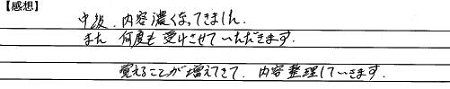 【感想】
中後、内容濃くなってきました。
また何度も受けさせていただきます。
覚えることが増えてきて、内容整理していきます。